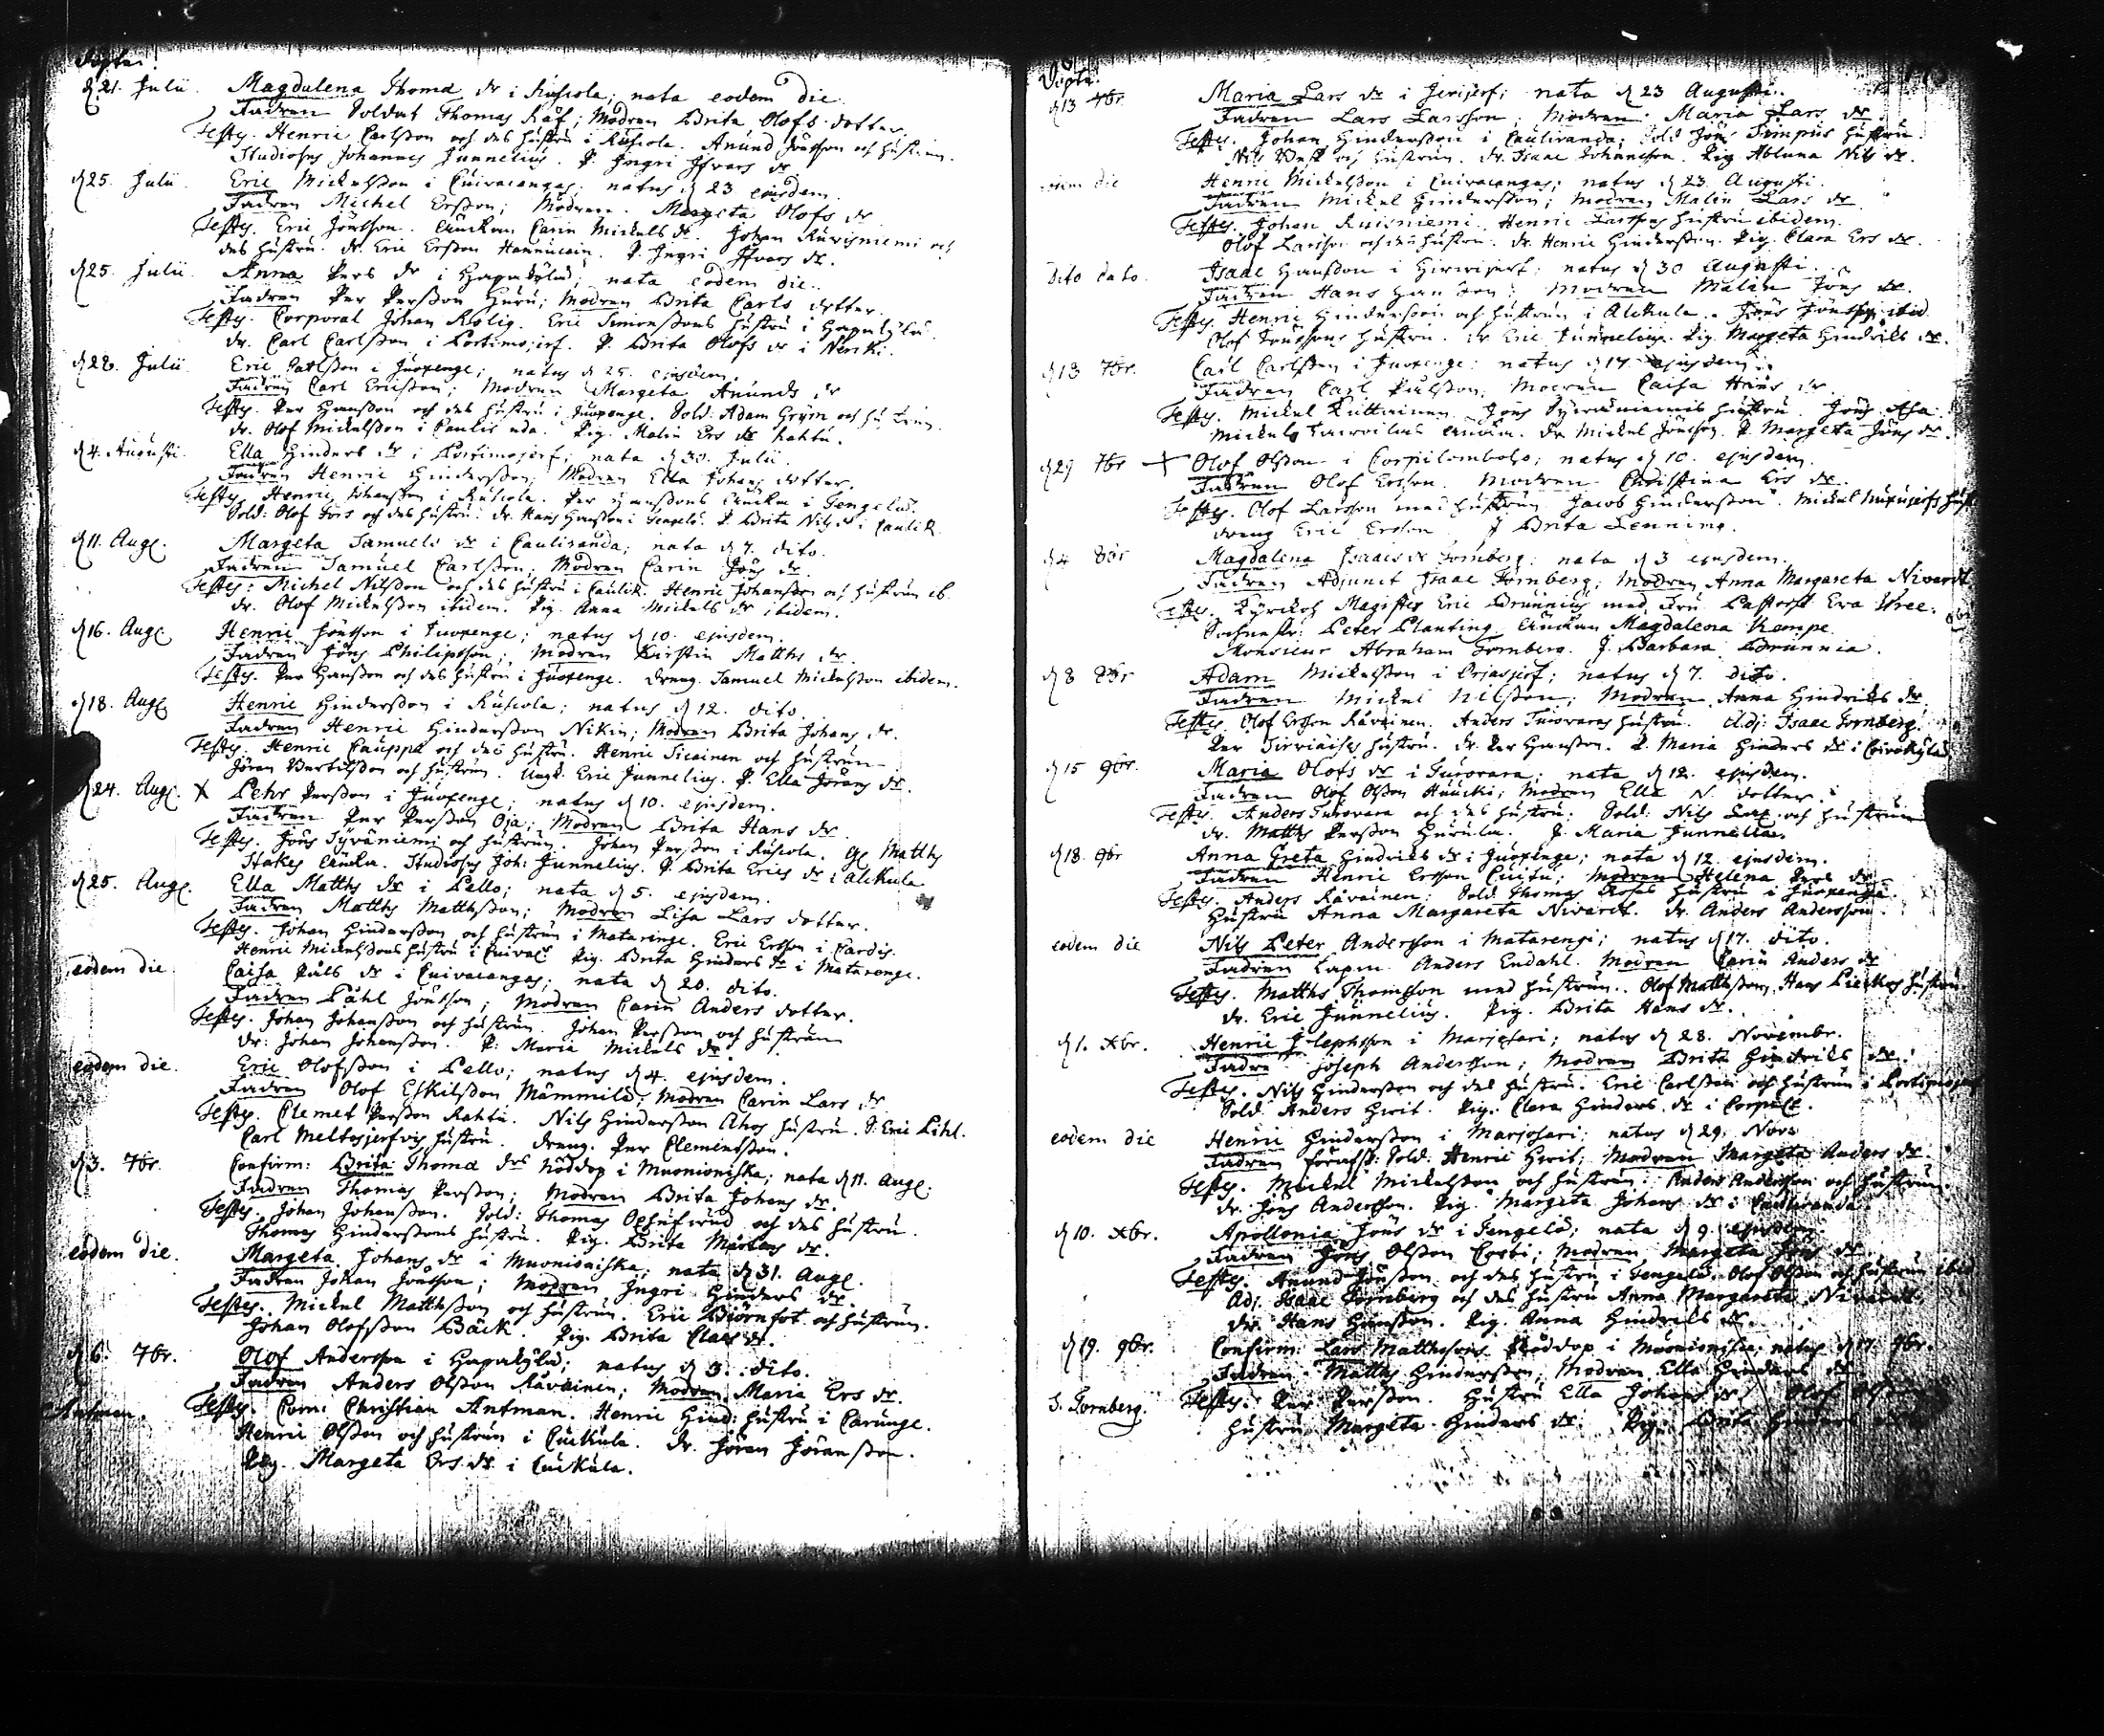 Döpta.
d 21. Julii. Magdalena Thomæ dr i Ruskola; nata eodem die.
Fadren Soldat Thomas Räf; Modren Brita Olofs dotter.
Testes. Henric Carlsson och des hustru i Ruskola. Anund Jönsson och hustrun.
Studiosus Johannes Junnelius. P. Ingri Ifvars dr
d 25. Julii. Eric Mickelsson i Cuivacangas; natus d 23 ejusdem.
Fadren Michel Ersson; Modren Margeta Olofs dr
Testes. Eric Jönsson. Änckan Carin Mickels dr. Johan Ruvisniemi och
des hustru. dr. Eric Ersson Hannucain. P. Ingri Ifvars dr.
d 25. Julii. Anna Pers dr i Hapakylä; nata eodem die.
Fadren Per Persson Huru; Modren Brita Carls dotter.
Testes. Corporal Johan Rolig. Eric Simonssons hustru i Hapakylä.
dr. Carl Carlsson i Portimojerf. P. Brita Olofs dr i Neriki.
d 28. Julii Eric Carlsson i Juoxenge; natus d 25. ejusdem.
Fadren Carl Ericsson; Modren Margeta Anunds dr
Testes. Per Hansson och des hustru i Juoxenge. Sold. Adam Grym och hustrun.
dr. Olof Mickelsson i Cauliranda. Pig. Malin Ers dr
d 4. Augusti. Ella Hinders dr i Portimojerf; nata d 30. Julii.
Fadren Henric Hindersson; Modren Ella Johans dotter.
Testes. Henric Johansson i Ruskola. Per Hanssons Äncka i Tengelä.
Sold: Olof Fors och des hustru. dr. Hans Hansson i Tengelä. P. Brita Nils dr i Caulir.
d 11. Aug. Margeta Samuels dr i Cauliranda; nata d 7. dito.
Fadren Samuel Carlsson; Modren Carin Jöns dr.
Testes: Michel Nilsson och des hustru i Caulir. Henric Johansson och hustrun ib.
dr. Olof Mickelsson ibidem. Pig. Anna Mickels dr ibidem.
d 16. Aug. Henric Jönsson i Juoxenge; natus d 10. ejusdem.
Fadren Jöns Philipsson; Modren Kirstin Matths dr.
Testes. Per Hansson och des hustru i Juoxenge. Dreng. Samuel Mickelsson ibidem.
d 18. Aug. Henric Hindersson i Ruskola; natus d 12. dito.
Fadren Henric Hindersson Nikin; Modren Brita Johans dr.
Testes. Henric Cauppi och des hustru. Henric Sicainen och hustrun
Jöran Bertilsson och hustrun. Eric Junnelius. P. Ella Jörans dr.
d 24. Aug. X Pehr Persson i Juoxenge; natus d 10. ejusdem.
Fadren Per Persson Oja; Modren Brita Hans dr.
Testes. Jöns Tyväniemi och hustrun. Johan Persson i Ruskola. Matths
Stakes Äncka. Studiosus Joh: Junnelius. P. Brita Erics dr i Alckula
d 25. Aug. Ella Matths dr i Pello; nata d 5. ejusdem.
Fadren Matths Matthsson; Modren Lisa Lars dotter.
Testes. Johan Hindersson och hustrun i Matarenge. Eric Ersson i Cardis.
Henric Mickelssons hustru i Cuivac. Pig. Brita Hinders dr i Matarenge.
eodem die. Caisa Påls dr i Cuivacangas; nata d 20. dito.
Fadren Påhl Jönsson; Modren Carin Anders dotter.
Testes. Johan Johansson och hustrun. Johan Persson och hustrun
dr: Johan Johansson. P. Maria Mickels dr.
eodem die. Eric Olofsson i Pello; natus d 4. ejusdem.
Fadren Olof Eskilsson Mämmilä; Modren Carin Lars dr
Testes. Clemet Persson Rahtu. Nils Hindersson Ahos hustru. S. Eric Pihl.
Carl Meltosjerfvis hustru. Dreng. Per Clemetsson.
d 3. 7br. Confirm: Brita Thomæ drs nöddop i Muonioniska; nata d 11. Aug.
Fadren Thomas Persson; Modren Brita Johans dr.
Testes. Johan Johansson. Sold: Thomas och des hustru.
Thomas Hinderssons hustru. Pig. Brita Mårtens dr.
eodem die. Margeta Johans dr i Muonioniska; nata d 31. Aug.
Fadren Johan Jönsson; Modren Ingri Hinders dr.
Testes. Mickel Matthsson och hustrun. Eric Biörnfot och hustrun.
Johan Olofsson Bäck. Pig. Brita Claes dr.
d 6. 7br. Olof Andersson i Hapakylä; natus d 3. dito.
Fadren Anders Olsson Räväinen; Modren Maria Ers dr.
Antman. Testes. Com: Christian Antman. Henric Hind: hustru i Carunge.
Henric Olsson och hustrun i Cuckula. dr. Jöran Jöransson.
Pig. Margeta Ers dr i Cuckula.
Döpta.
d 13 7br. Maria Lars dr i Jerijerf; nata d 23 Augusti.
Fadren Lars Larsson; Modren Maria Lars dr
Testes. Johan Hindersson i Cauliranda; Sold Jöns Simpus hustru.
Nils och hustrun. dr. Isaac Johansson. Pig. Abluna Nils dr.
eodem die Henric Mickelsson i Cuivacangas; natus d 23. Augusti.
Fadren Mickel Hindersson; Modren Malin Lars dr
Testes. Johan Ruisniemi. Henric Larssons hustru ibidem.
Olof Larsson och des hustru. dr. Henric Hindersson. Pig. Clara Ers dr.
Dito dato. Isaac Hansson i Hirwijerf; natus d 30 Augusti.
Fadren Hans Hansson; Modren Malin Jöns dr.
Testes. Henric Hindersson och hustrun i Alckula. Jöns Jönsson ibid.
Olof Jönssons hustru. dr Eric Junnelius. Pig. Margeta Hindriks dr.
d 13 7br. Carl Carlsson i Juoxenge; natus d 17. ejusdem.
Fadren Carl Pålsson. Modren Caisa Hans dr.
Testes. Mickel Kuttainen. Jöns Tyväniemis hustru. Jöns Aha.
Mickels Äncka. dr Mickel Jönsson. P. Margeta Jöns dr.
d 29 7br Olof Olsson i Corpilombolo; natus d 10. ejusdem.
Fadren Olof Ersson. Modren Christina Ers dr.
Testes. Olof Larsson med hustrun. Jacob Hindersson. Mickel
dreng Eric Ersson J Brita Lenning.
d 4 8br Magdalena Isaacs dr Fornberg; nata d 3 ejusdem.
Fadren Adjunct Isaac Fornberg; Modren Anna Margareta Nivardt.
Testes. Kyrckoh. Magister Eric Brunnius med Fru. Pastorsk. Eva Uree.
Sochnesk: Peter Planting Änckan Magdalena Kempe
Monsieur Abraham Fornberg. J. Barbara Brunnia.
d 8 8br Adam Mickelsson i Orjasjerf; natus d 7. dito.
Fadren Mickel Nilsson; Modren Anna Hindriks dr
Testes. Olof Ersson Räväinen. Anders Turovaras hustru. Adj: Isaac Fornberg.
Per hustru. dr. Per Hansson. P. Maria Hinders dr i Coivukylä.
d 15 9br. Maria Olofs dr i Turovara; nata d 12. ejusdem.
Fadren Olof Olsson Huucki; Modren Ella N. dotter.
Testes. Anders Turovara och des hustru. Sold: Nils och hustrun
dr. Matths Persson Hurula. J. Maria Junnelia.
d 18. 9br Anna Greta Hindriks dr i Juoxenge; nata d 12 ejusdem.
Fadren Henric Ersson Modren Helena Pers dr
Testes. Anders Räväinen. Sold Thomas Rofs hustru i Juoxenge.
Hustru Anna Margareta Nivardt. dr. Anders Andersson.
eodem die Nils Peter Andersson i Matarengi; natus d 17. dito.
Fadren Lapm. Anders Endahl. Modren Carin Anders dr
Testes. Matths Thomsson med hustrun. Olof Matthsson. Hans hustru
dr. Eric Junnelius. Pig. Brita Hans dr.
d 1. Xbr. Henric Josephsson i Marjosari; natus d 28. Novembr.
Fadren Joseph Andersson; Modren Brita Hindriks dr.
Testes. Nils Hindersson och des hustru. Eric Carlsson och hustrun i Portimojerf
Sold Anders Hwit. Pig. Clara Hinders dr i Corpik.
eodem die Henric Hindersson i Marjosari; natus d 29. Nov:
Fadren Sold: Henric Hwit; Modren Margeta Anders dr.
Testes. Mickel Mickelsson och hustrun. Anders Andersson och hustrun
dr. Jöns Andersson. Pig. Margeta Johans dr i Cauliranda.
d 10. Xbr. Apollonia Jöns dr i Tengelä; nata d 9. ejusdem
Fadren Jöns Olsson Corbi; Modren Margeta Jöns dr
Testes. Anund Jönsson och des hustru i Tengelä. Olof Olsson och hustrun ibid
Adj. Isaac Fornberg och des hustru Anna Margareta Nivardt.
dr. Hans Hansson. Pig. Anna Hindriks dr.
d 19. 9br. Confirm: Lars Matthssons Nöddop i Muonioniska; natus d 17. 9br.
Fadren Matths Hindersson; Modren Ella Hinders dr
I. Fornberg. Testes. Per Persson. Hustru Ella Johans dr. Olof
Hustru Margeta Hinders dr. Pig. Brita Hinders